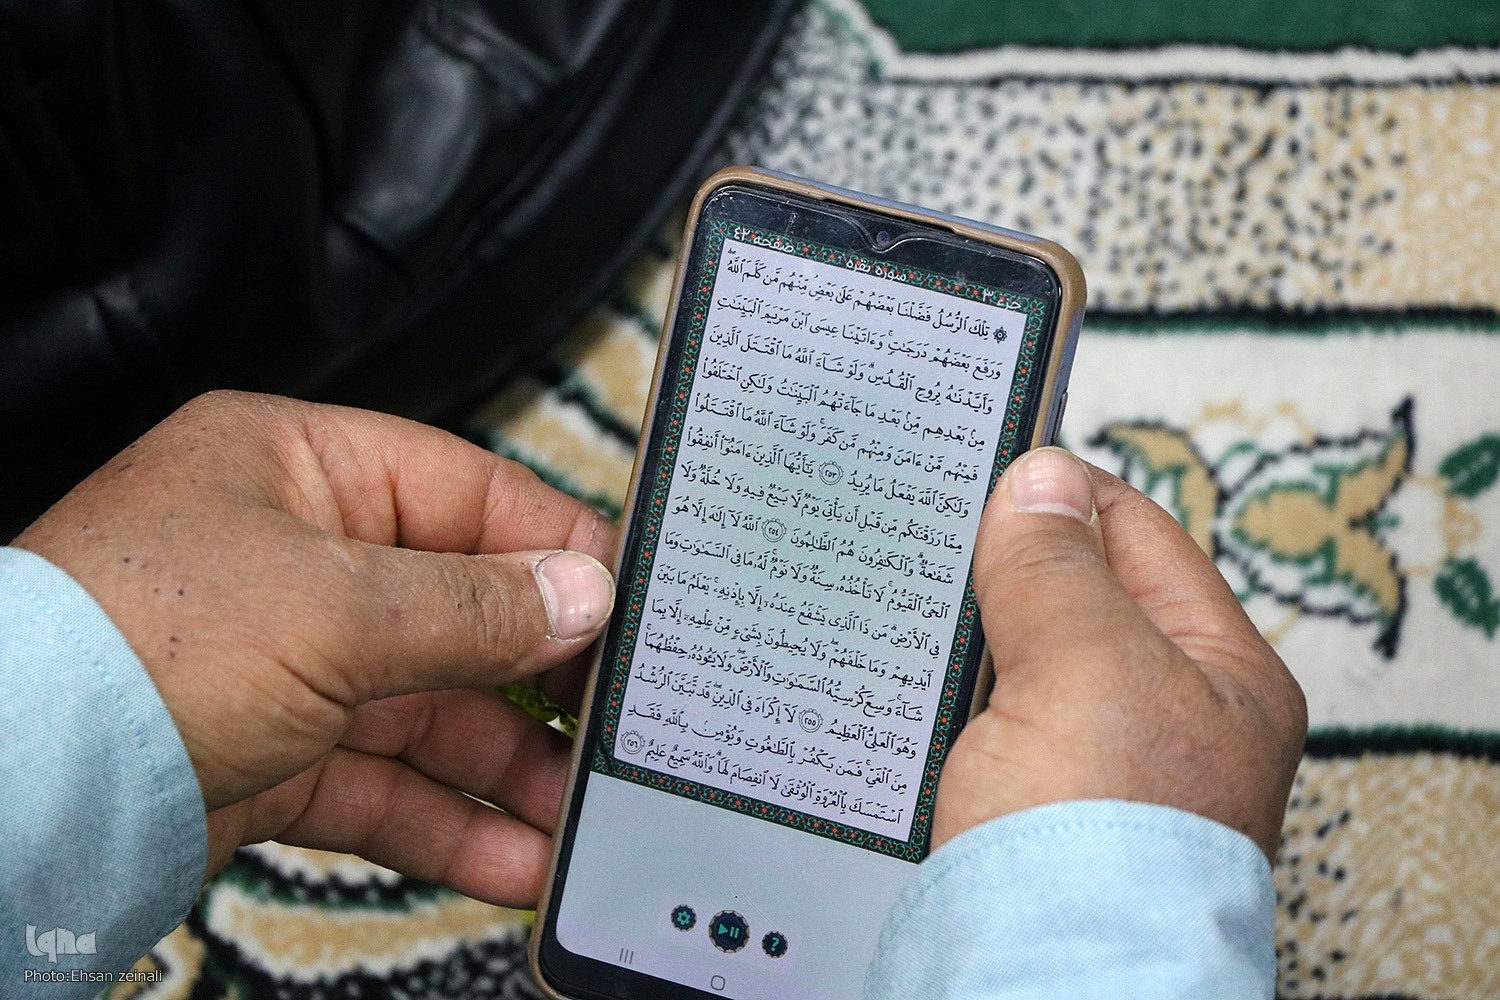 صفحه ٤٢
سوره بقره
جزء ٣
۞ تِلْكَ ٱلرُّسُلُ فَضَّلْنَا بَعْضَهُمْ عَلَىٰ بَعْضٍ مِّنْهُم مَّن كَلَّمَ ٱللَّهُ
وَرَفَعَ بَعْضَهُمْ دَرَجَٰتٍ وَءَاتَيْنَا عِيسَى ٱبْنَ مَرْيَمَ ٱلْبَيِّنَٰتِ
وَأَيَّدْنَٰهُ بِرُوحِ ٱلْقُدُسِ وَلَوْ شَآءَ ٱللَّهُ مَا ٱقْتَتَلَ ٱلَّذِينَ
مِنۢ بَعْدِهِم مِّنۢ بَعْدِ مَا جَآءَتْهُمُ ٱلْبَيِّنَٰتُ وَلَٰكِنِ ٱخْتَلَفُوا۟
فَمِنْهُم مَّنْ ءَامَنَ وَمِنْهُم مَّن كَفَرَ وَلَوْ شَآءَ ٱللَّهُ مَا ٱقْتَتَلُوا۟
وَلَٰكِنَّ ٱللَّهَ يَفْعَلُ مَا يُرِيدُ ٢٥٣ يَٰٓأَيُّهَا ٱلَّذِينَ ءَامَنُوٓا۟ أَنفِقُوا۟
مِمَّا رَزَقْنَٰكُم مِّن قَبْلِ أَن يَأْتِىَ يَوْمٌ لَّا بَيْعٌ فِيهِ وَلَا خُلَّةٌ وَلَا
شَفَٰعَةٌ وَٱلْكَٰفِرُونَ هُمُ ٱلظَّٰلِمُونَ ٢٥٤ ٱللَّهُ لَآ إِلَٰهَ إِلَّا هُوَ
ٱلْحَىُّ ٱلْقَيُّومُ لَا تَأْخُذُهُۥ سِنَةٌ وَلَا نَوْمٌ لَّهُۥ مَا فِى ٱلسَّمَٰوَٰتِ وَمَا
فِى ٱلْأَرْضِ مَن ذَا ٱلَّذِى يَشْفَعُ عِندَهُۥٓ إِلَّا بِإِذْنِهِۦ يَعْلَمُ مَا بَيْنَ
أَيْدِيهِمْ وَمَا خَلْفَهُمْ وَلَا يُحِيطُونَ بِشَىْءٍ مِّنْ عِلْمِهِۦٓ إِلَّا بِمَا
شَآءَ وَسِعَ كُرْسِيُّهُ ٱلسَّمَٰوَٰتِ وَٱلْأَرْضَ وَلَا يَـُٔودُهُۥ حِفْظُهُمَا
وَهُوَ ٱلْعَلِىُّ ٱلْعَظِيمُ ٢٥٥ لَآ إِكْرَاهَ فِى ٱلدِّينِ قَد تَّبَيَّنَ ٱلرُّشْدُ
مِنَ ٱلْغَىِّ فَمَن يَكْفُرْ بِٱلطَّٰغُوتِ وَيُؤْمِنۢ بِٱللَّهِ فَقَدِ
ٱسْتَمْسَكَ بِٱلْعُرْوَةِ ٱلْوُثْقَىٰ لَا ٱنفِصَامَ لَهَا وَٱللَّهُ سَمِيعٌ عَلِيمٌ ٢٥٦
?
iqna
Photo:Ehsan zeinali